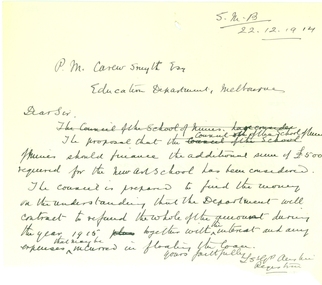 S.M.B
22.12.1914
P. M. Carew Smyth Esq
Education Department, Melbourne
Dear Sir.
The Council of the School of Mines, have consider
The proposal that the Council of the School
Council of the School of Mines
of Mines should finance the additional sum of £500
required for the New Art School has been considered.
The council is prepared to find the money
on the understanding that the Department will
contract to refund the whole of the amount during
the year 1915 together with the interest and any
expenses that may be incurred in floating the loan.
Yours faithfully
Registrar